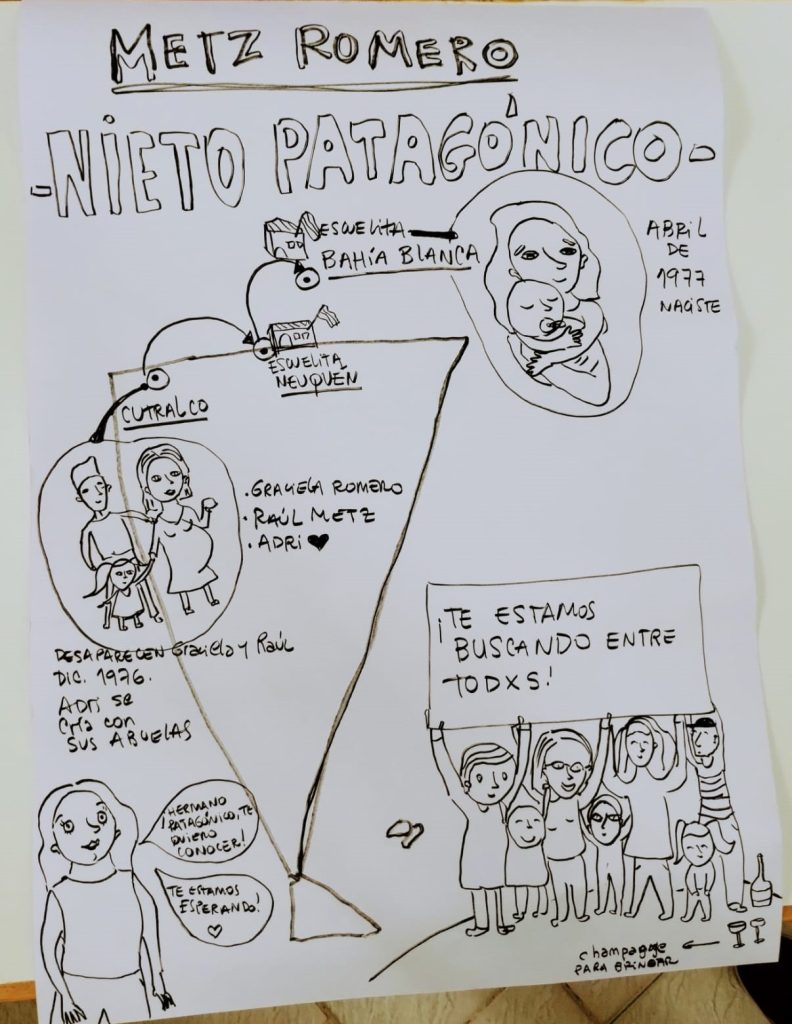 METZ ROMERO
-NIETO PATAGÓNICO-
ESCUELITA
BAHÍA BLANCA
ABRIL
DE
1977
NACISTE
ESCUELITA
NEUQUEN
CUTRALCO
·GRACIELA ROMERO
·RAÚL METZ
·ADRI ♥
DESAPARECEN Graciela y Raúl
DIC. 1976.
ADRI se
CRÍA CON
SUS ABUELAS
¡TE ESTAMOS
BUSCANDO ENTRE
TODXS!
¡HERMANO
PATAGÓNICO, TE
QUIERO
CONOCER!
TE ESTAMOS
ESPERANDO!
♡
champagne
PARA BRINDAR